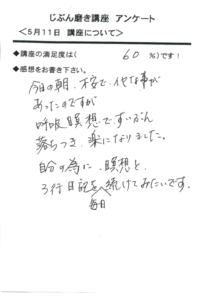 じぶん磨き講座 アンケート
＜5月11日 講座について＞
◆講座の満足度は（ 60 %）です！
◆感想をお書き下さい。
今日の朝、不安で、イヤな事が
あったのですが
呼吸瞑想でずいぶん
落ちつき、楽になりました。
自分の為に、瞑想と、
3行日記を毎日続けてみたいです。